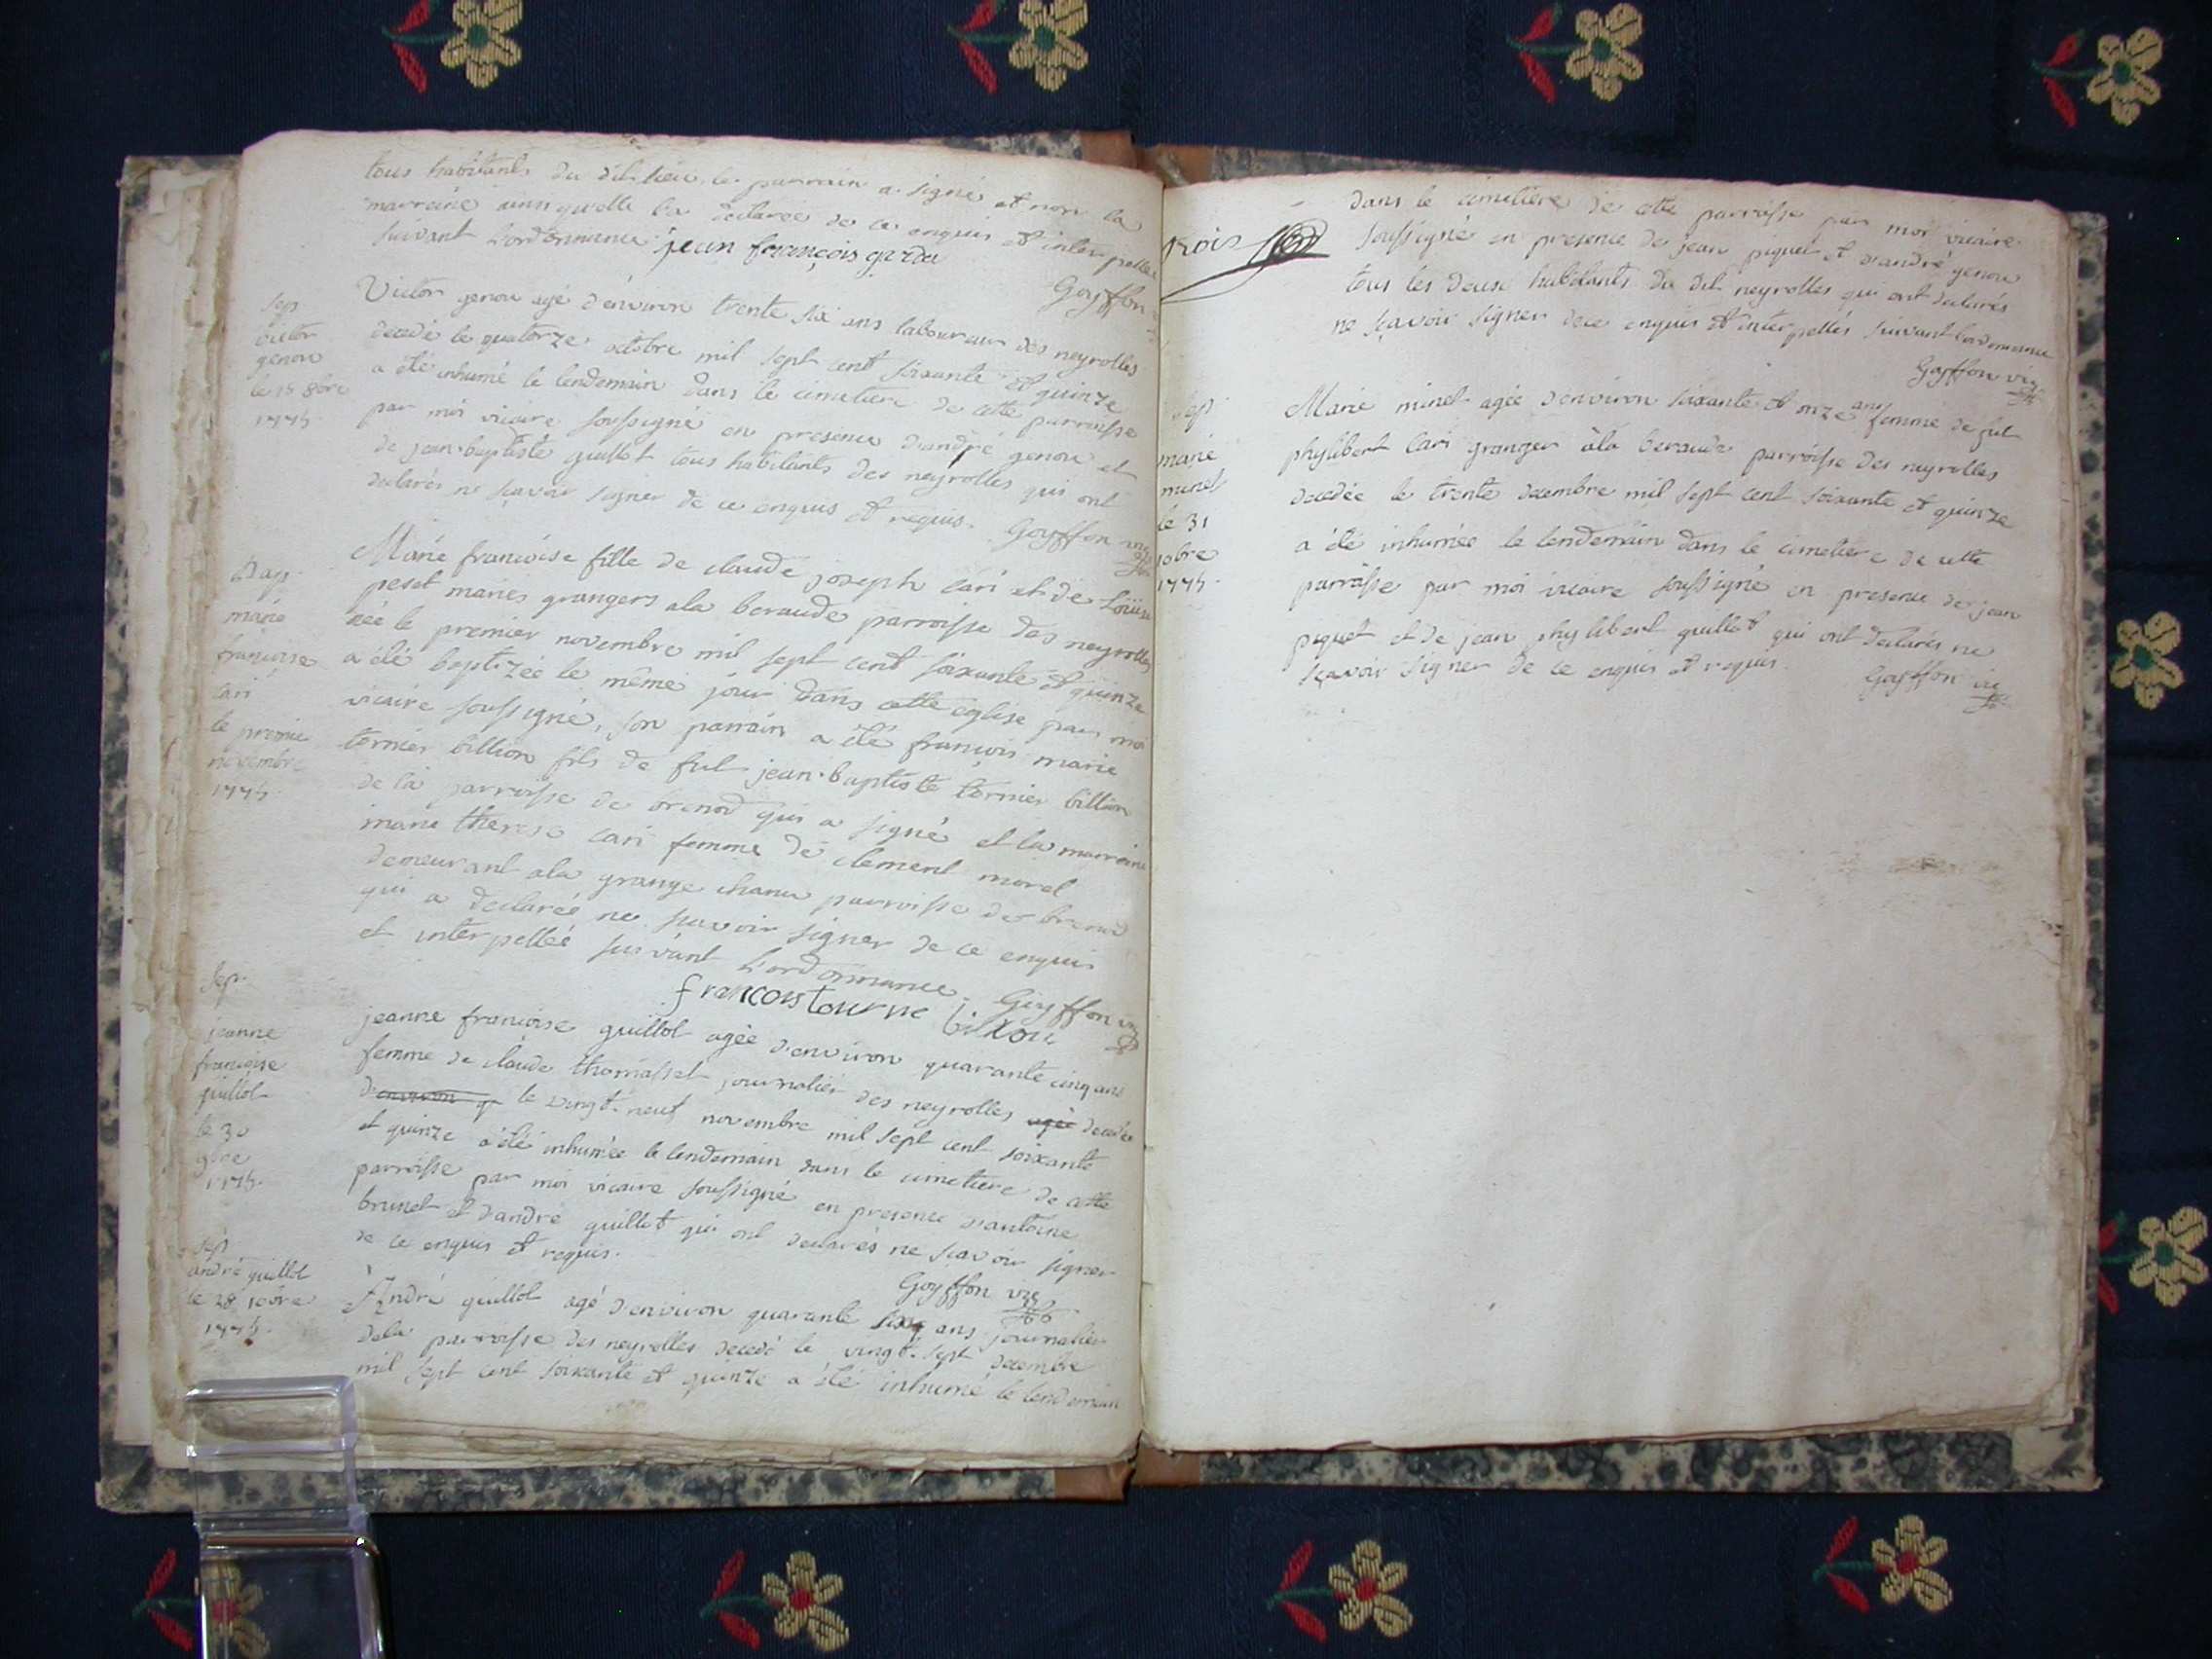 tous habitants du dit lieu, le parrain a signé et non la
marreine ainsi qu'elle l'a declaree de ce enquis et interpellée
suivant l'ordonnance jean françois garda
Goyffon
Sep.
victor
genou
le 15 8bre
1775.
Victor genou agé d'environ trente six ans laboureur des neyrolles
decedé le quatorze octobre mil sept cent soixante et quinze
a été inhumé le lendemain dans le cimetiere de cette parroisse
par moi vicaire soussigné en presence d'andré genou et
de jean-baptiste guillot tous habitants des neyrolles qui ont
declarés ne sçavoir signer de ce enquis et requis. Goyffon vic
Bap.
marie
françoise
cari
le premier
novembre
1775.
Marie françoise fille de claude joseph cari et de Loüise
petet mariés grangers a la beraude parroisse des neyrolles
née le premier novembre mil sept cent soixante et quinze
a été baptizée le même jour dans cette eglise par moi
vicaire soussigné, son parrain a été françois marie
tornier billion fils de fut jean-baptiste tornier billion
de la parroisse de brenod qui a signé et la marreine
marie therese cari femme de clement morel
demeurant a la grange chanu parroisse de brenod
qui a declarée ne sçavoir signer de ce enquis
et interpellée suivant l'ordonnance. Goyffon vic
francois tournie billion
Sep.
jeanne
françoise
guillot
le 30
9bre
1775.
jeanne françoise guillot agée d'environ quarante cinq ans
femme de claude thomasset journalier des neyrolles agée decedée
d'environ q le vingt-neuf novembre mil sept cent soixante
et quinze a été inhumée le lendemain dans le cimetiere de cette
parroisse par moi vicaire soussigné en presence d'antoine
brunet et d'andré guillot qui ont declarés ne sçavoir signer
de ce enquis et requis.
Goyffon vic
Sep
andré guillot
le 28 10bre
1775.
André guillot agé d'environ quarante six ans journalier
de la parroisse des neyrolles decedé le vingt-sept decembre
mil sept cent soixante et quinze a été inhumé le lendemain
trois
dans le cimetiere de cette parroisse par moi vicaire
soussigné en presence de jean piquet et d'andré genou
tous les deux habitants du dit neyrolles qui ont declarés
ne sçavoir signer de ce enquis et interpellés suivant l'ordonnance
Goyffon vic
Sep.
marie
minet
le 31
10bre
1775.
Marie minet agée d'environ soixante et onze ans femme de fut
phylibert cari granger à la beraude parroisse des neyrolles
decedée le trente decembre mil sept cent soixante et quinze
a été inhumée le lendemain dans le cimetiere de cette
parroisse par moi vicaire soussigné en presence de jean
piquet et de jean phylibert guillot qui ont declarés ne
sçavoir signer de ce enquis et requis.
Goyffon vic